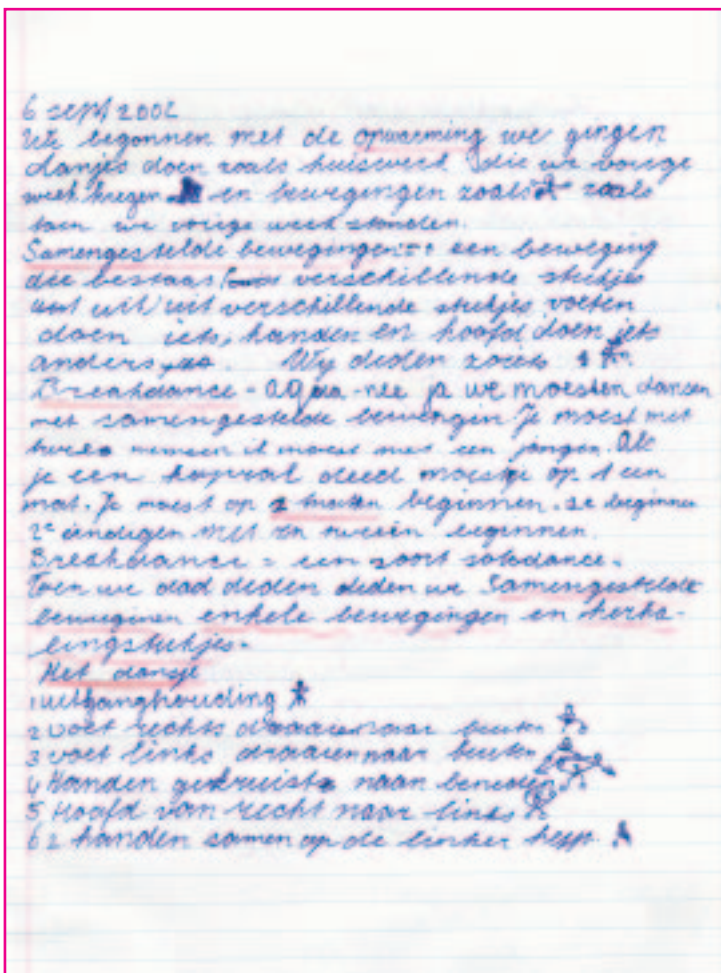 6 sept 2002
We begonnen met de opwarming we gingen
dansjes doen zoals huiswerk die we vorige
week kregen en bewegingen zoals zoals
toen we vorige week stonden.
Samengestelde bewegingen = een beweging
die bestaas verschillende stukjes
uit uit verschillende stukjes voeten
doen iets, handen en hoofd doen iets
anders. Wij deden zoiets
Breakdance - ja-nee ja we moesten dansen
met samengestelde bewegingen Je moest met
twee mensen moest met een jongen. Als
je een deed moest je op 1 een
mat. Je moest op 2 matten beginnen. beginnen
2e eindigen met beginnen.
Breakdance = een soort solodance.
Toen we dad deden deden we Samengestelde
bewegingen enkele bewegingen en herha-
lingstukjes.
Het dansje
1 uitganghouding
2 voet rechts draaien naar buiten
3 voet links draaien naar buiten
4 Handen gekruist naar beneden
5 Hoofd van recht naar links
6 2 handen samen op de linker heup.